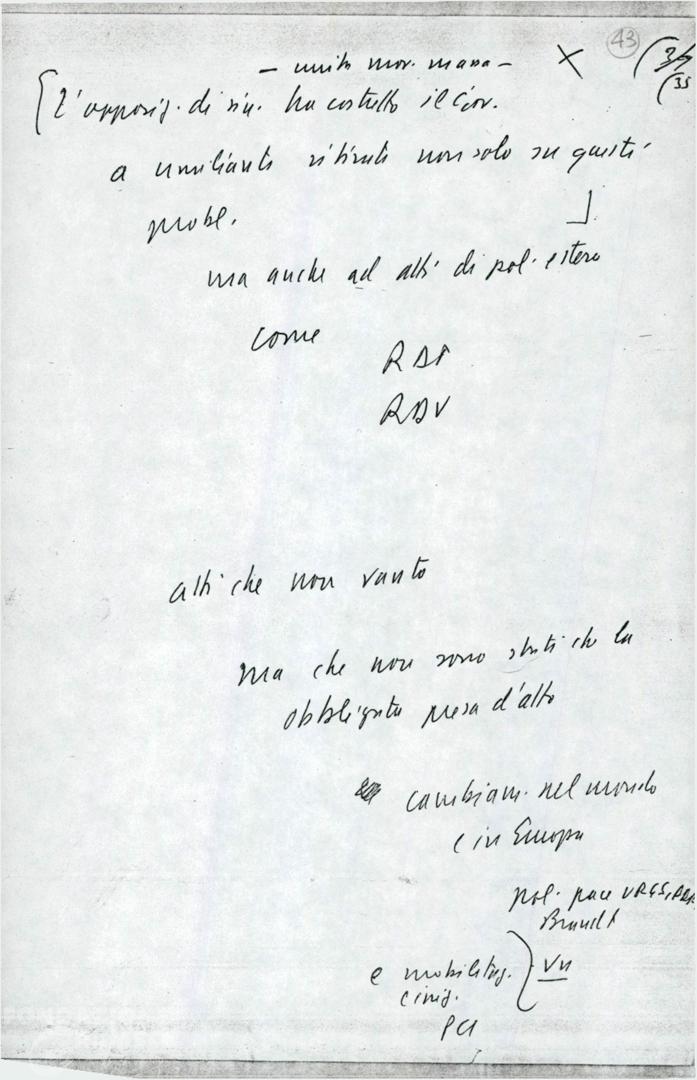 43
- unità mov. massa -
(34
(35
L'opposiz. di sin. ha costretto il Gov.
a umilianti ritirate non solo su questi
probl.
ma anche ad altri di pol. estera
come
RDT
RDV
atti che non vanto
ma che non sono stati che la
obbligata presa d'atto
cambiam. nel mondo
e in Europa
pol. pace URSS, RDT
Brandt
e mobilitaz.
Vn
e iniz.
PCI